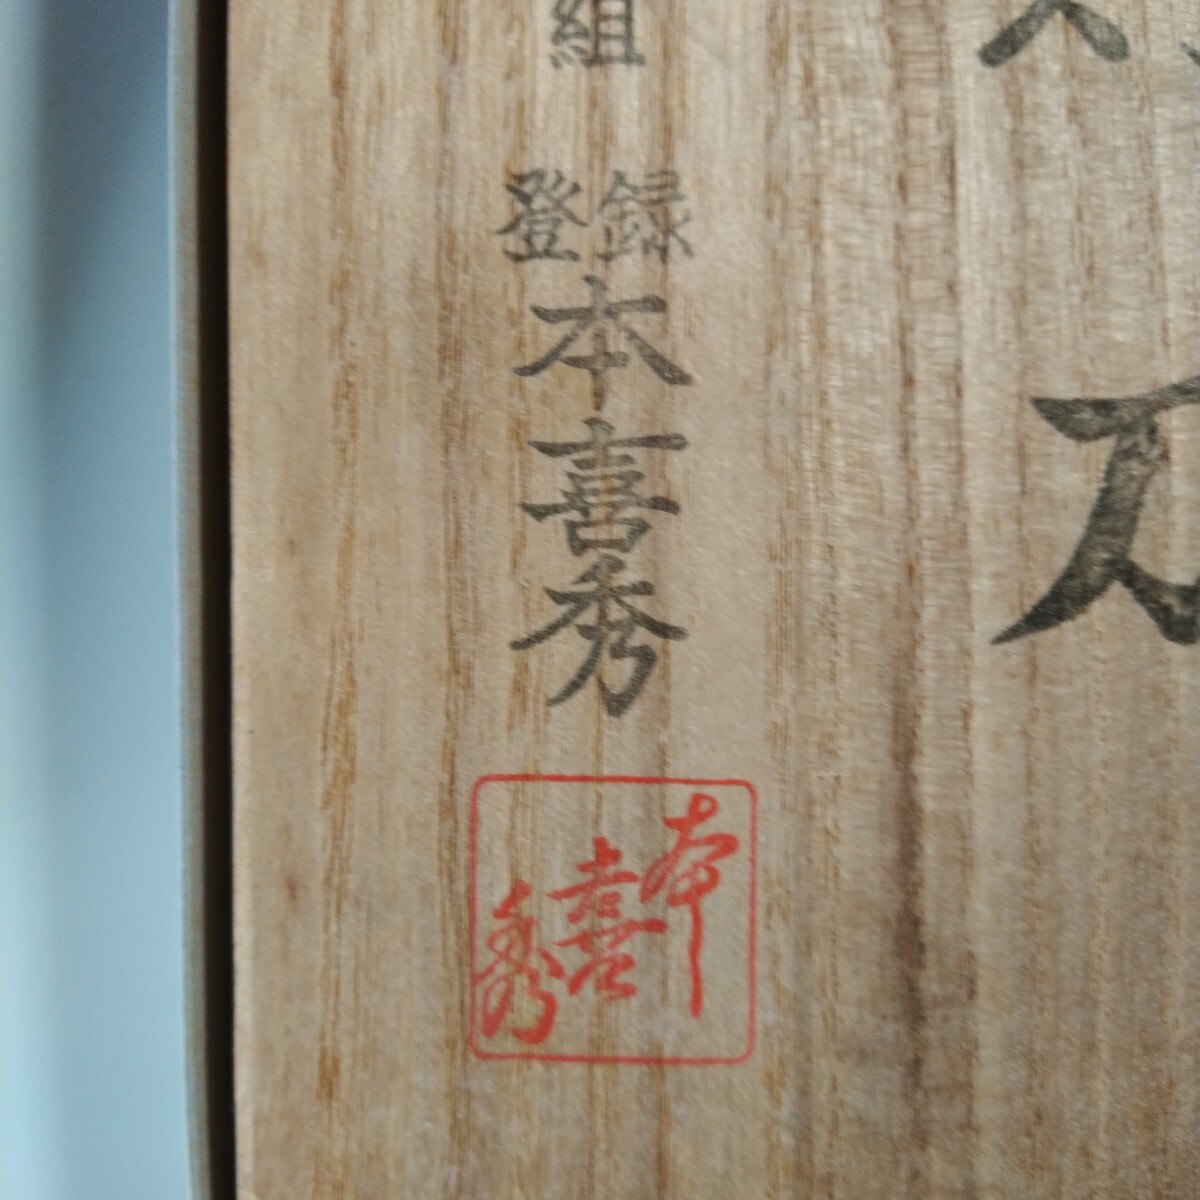 刀
組
登録
本喜秀
本喜秀